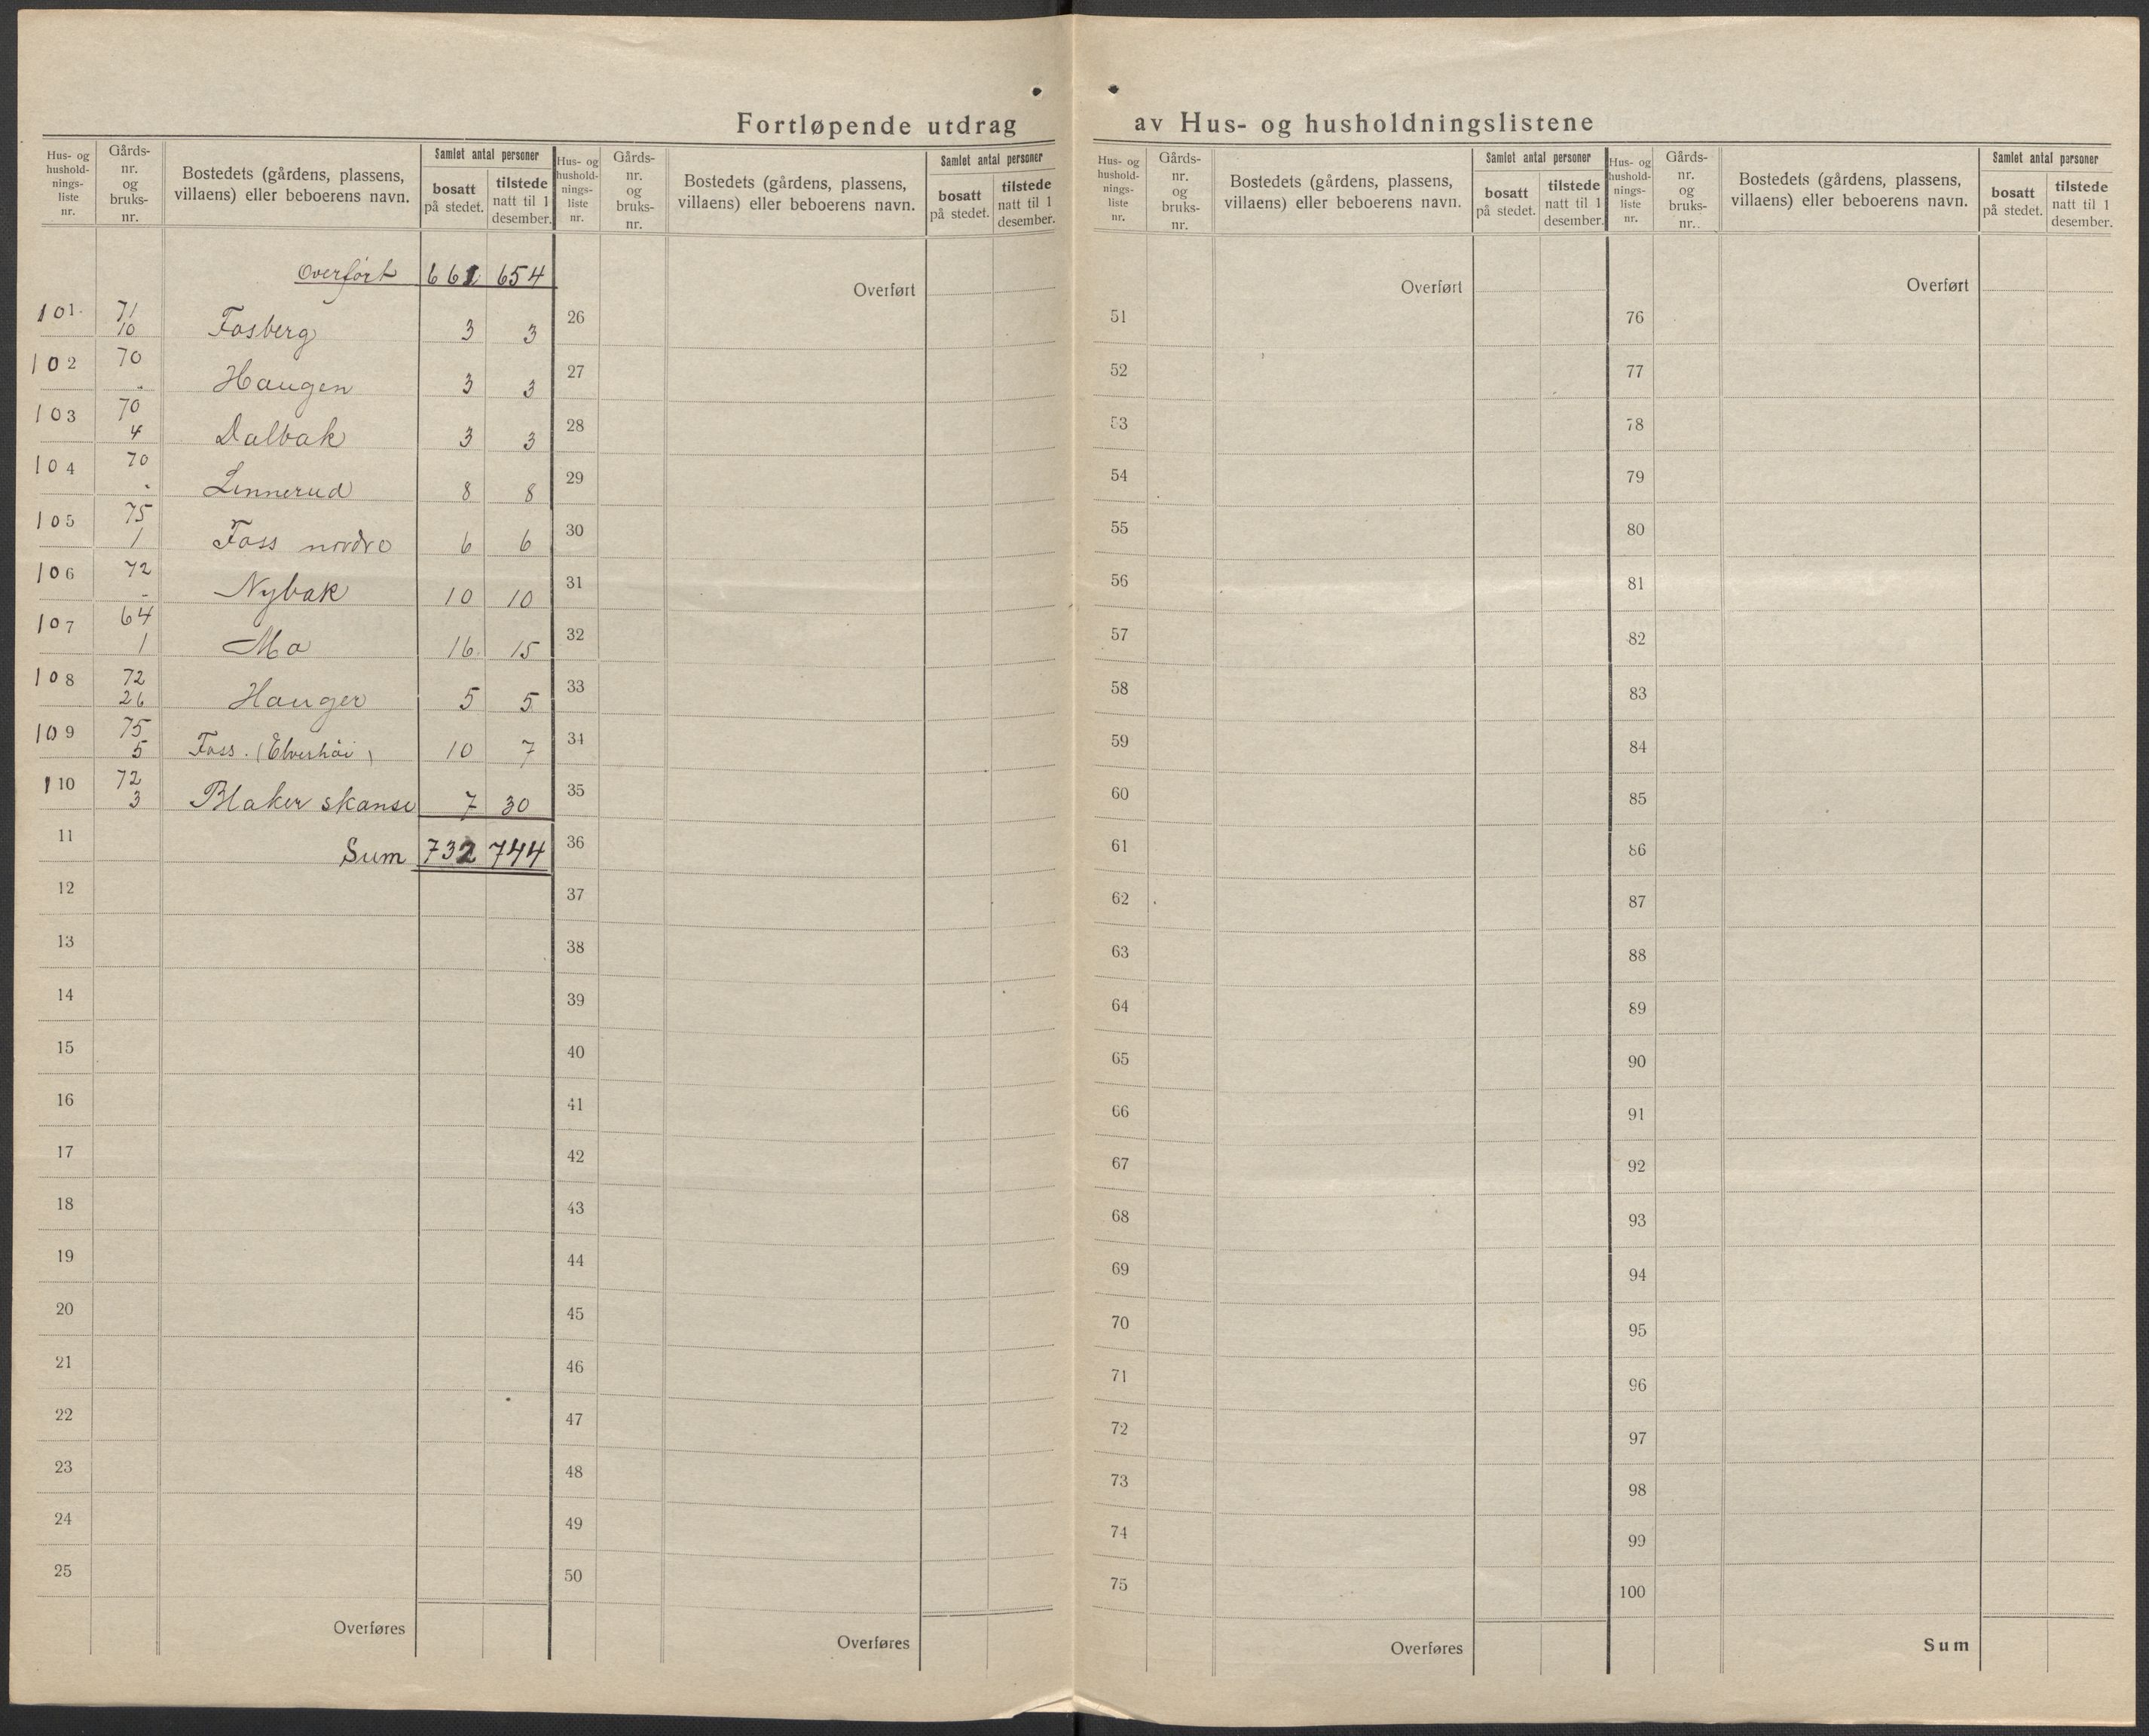 Fortløpende utdrag av Hus- og husholdningslistene
Hus- og hushold- nings- liste nr.
Gårds- nr. og bruks- nr.
Bostedets (gårdens, plassens, villaens) eller beboerens navn.
Samlet antal personer
bosatt på stedet.
tilstede natt til 1 desember.
Overført 661 654
101 71 10 Fosberg 3 3
102 70 " Haugen 3 3
103 70 4 Dalbak 3 3
104 70 - Linnerud 8 8
105 75 1 Foss nordre 6 6
106 72 - Nybak 10 10
107 64 1 Mo 16 15
108 72 26 Hauger 5 5
109 75 5 Foss. (Elverhöi) 10 7
110 72 3 Blaker skanse 7 30
11 Sum 732 744
12
13
14
15
16
17
18
19
20
21
22
23
24
25
Overføres
Hus- og hushold- nings- liste nr.
Gårds- nr. og bruks- nr.
Bostedets (gårdens, plassens, villaens) eller beboerens navn.
Samlet antal personer
bosatt på stedet.
tilstede natt til 1 desember.
Overført
26
27
28
29
30
31
32
33
34
35
36
37
38
39
40
41
42
43
44
45
46
47
48
49
50
Overføres
Hus- og hushold- nings- liste nr.
Gårds- nr. og bruks- nr.
Bostedets (gårdens, plassens, villaens) eller beboerens navn.
Samlet antal personer
bosatt på stedet.
tilstede natt til 1 desember.
Overført
51
52
53
54
55
56
57
58
59
60
61
62
63
64
65
66
67
68
69
70
71
72
73
74
75
Overføres
Hus- og hushold- nings- liste nr.
Gårds- nr. og bruks- nr..
Bostedets (gårdens, plassens, villaens) eller beboerens navn.
Samlet antal personer
bosatt på stedet.
tilstede natt til 1 desember.
Overført
76
77
78
79
80
81
82
83
84
85
86
87
88
89
90
91
92
93
94
95
96
97
98
99
100
Sum